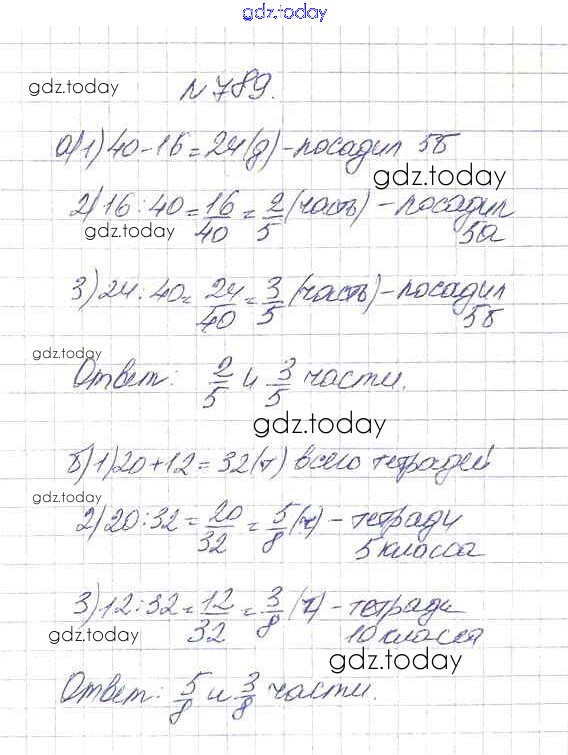 gdz.today
gdz.today
№ 789.
а) 1) 40-16=24(д)-посадил 5б
gdz.today
2) 16:40=16/40=2/5 (часть) - посадил
gdz.today
5а
3) 24:40=24/40=3/5 (часть)-посадил
5б
gdz.today
Ответ: 2/5 и 3/5 части.
gdz.today
б) 1) 20+12=32(т) всего тетрадей
gdz.today
2) 20:32=20/32=5/8 (ч) - тетради
5 класса
3) 12:32=12/32=3/8 (ч) - тетради
gdz.today
10 класса
gdz.today
Ответ: 5/8 и 3/8 части.
gdz.today